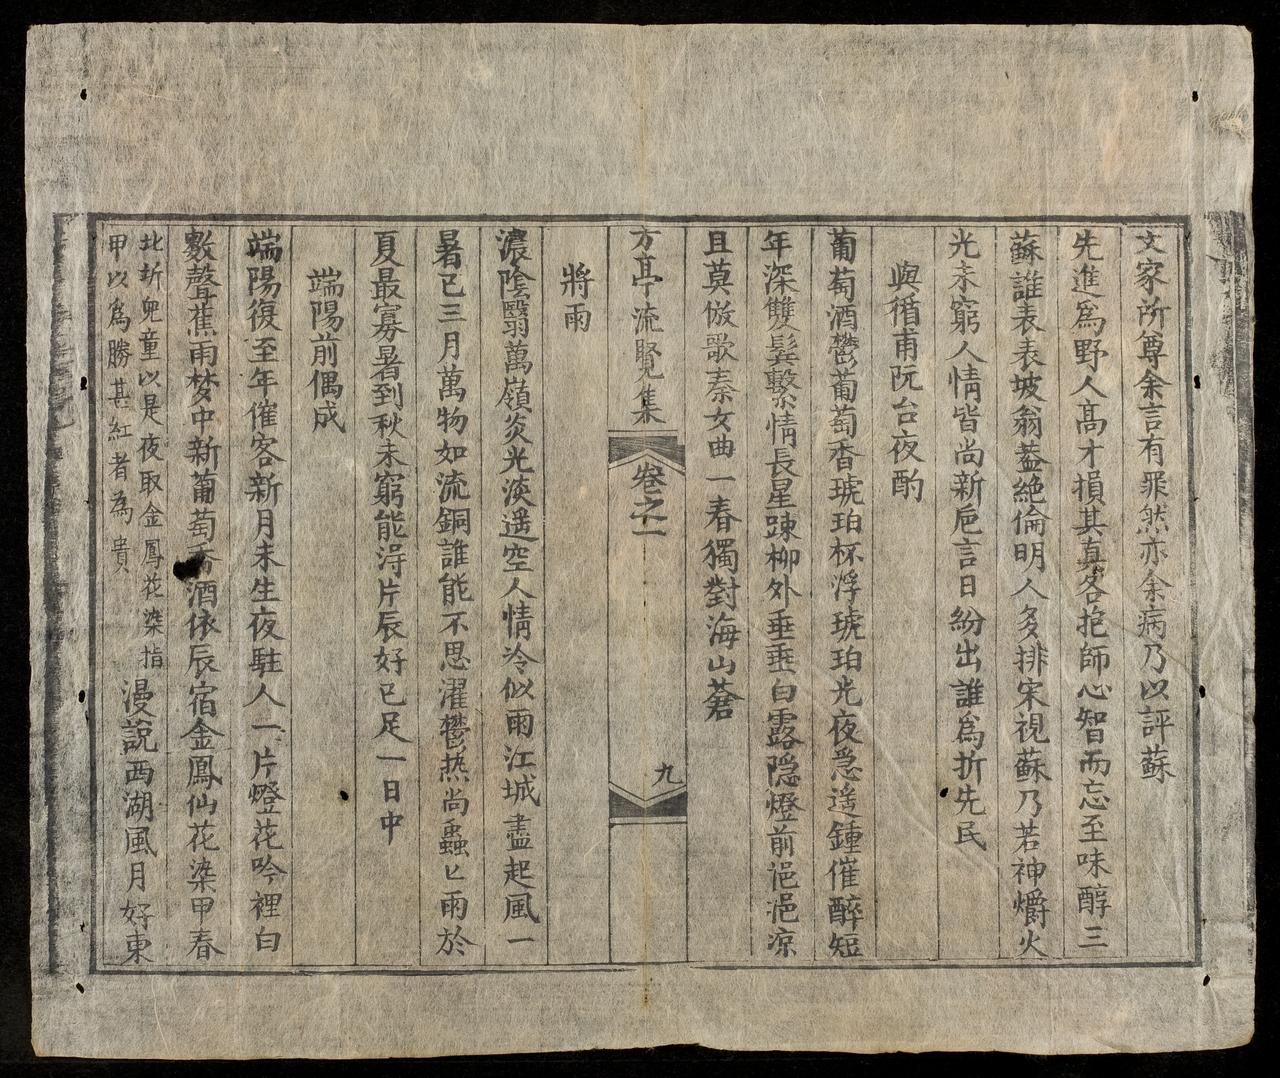 文家所尊余言有罪然亦余病乃以評蘇
先進爲野人高才損其真各抱師心智而忘至味醇三
蘇誰表表坡翁蓋絶倫明人多排宋視蘇乃若神爝火
光未窮人情皆尚新巵言日紛出誰爲折先民
與循甫阮台夜酌
葡萄酒鬱葡萄香琥珀杯浮琥珀光夜急遙鍾催醉短
年深雙鬂繫情長星踈柳外垂垂白露隠燈前浥浥凉
且莫倣歌秦女曲一春獨對海山蒼
方亭流覽集
卷之一
九
將雨
濃陰翳萬嶺炎光淡遥空人情冷似雨江城盡起風一
暑已三月萬物如流銅誰能不思濯鬱热尚蟲匕雨於
夏最寡暑到秋未窮能淂片辰好已足一日中
端陽前偶成
端陽復至年催客新月未生夜駐人一片燈花吟裡白
數聲蕉雨梦中新葡萄香酒依辰宿金鳳仙花染甲春
北圻兒童以是夜取金鳳花染指
甲以爲勝甚紅者為貴
漫說西湖風月好東